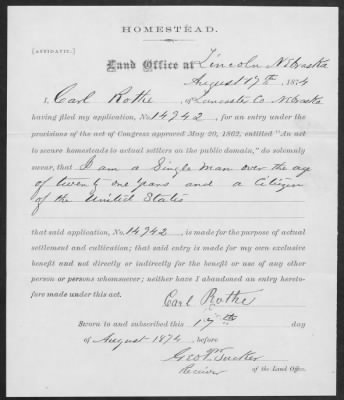 HOMESTEAD.
[AFFIDAVIT.]
Land Office at Lincoln Nebraska
August 17th, 1874
I, Carl Rothe, of Lancaster Co. Nebraska
having filed my application, No. 14742, for an entry under the
provisions of the act of Congress approved May 20, 1862, entitled "An act
to secure homesteads to actual settlers on the public domain," do solemnly
swear, that I am a Single Man over the age
of twenty one Years and a Citizen
of the United States
that said application, No. 14742, is made for the purpose of actual
settlement and cultivation; that said entry is made for my own exclusive
benefit and not directly or indirectly for the benefit or use of any other
person or persons whomsoever; neither have I abandoned an entry hereto-
fore made under this act.
Carl Rothe
Sworn to and subscribed this 17th day
of August 1874, before
Geo P. Tucker
Receiver of the Land Office.